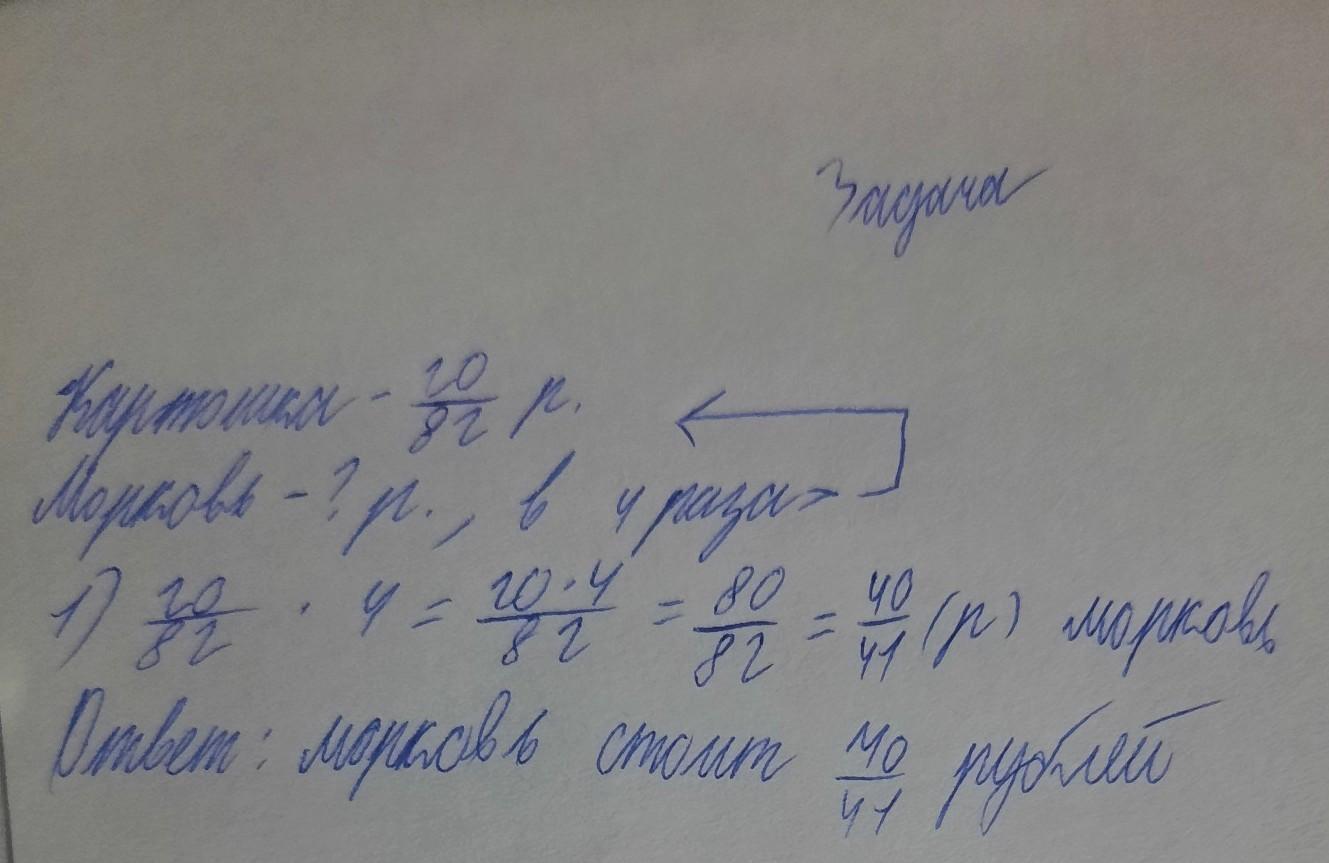 Задача
Картошка - 20/82 р.
Морковь - ? р., в 4 раза >
1) 20/82 · 4 = 20·4/82 = 80/82 = 40/41 (р) морковь
Ответ: морковь стоит 40/41 рублей